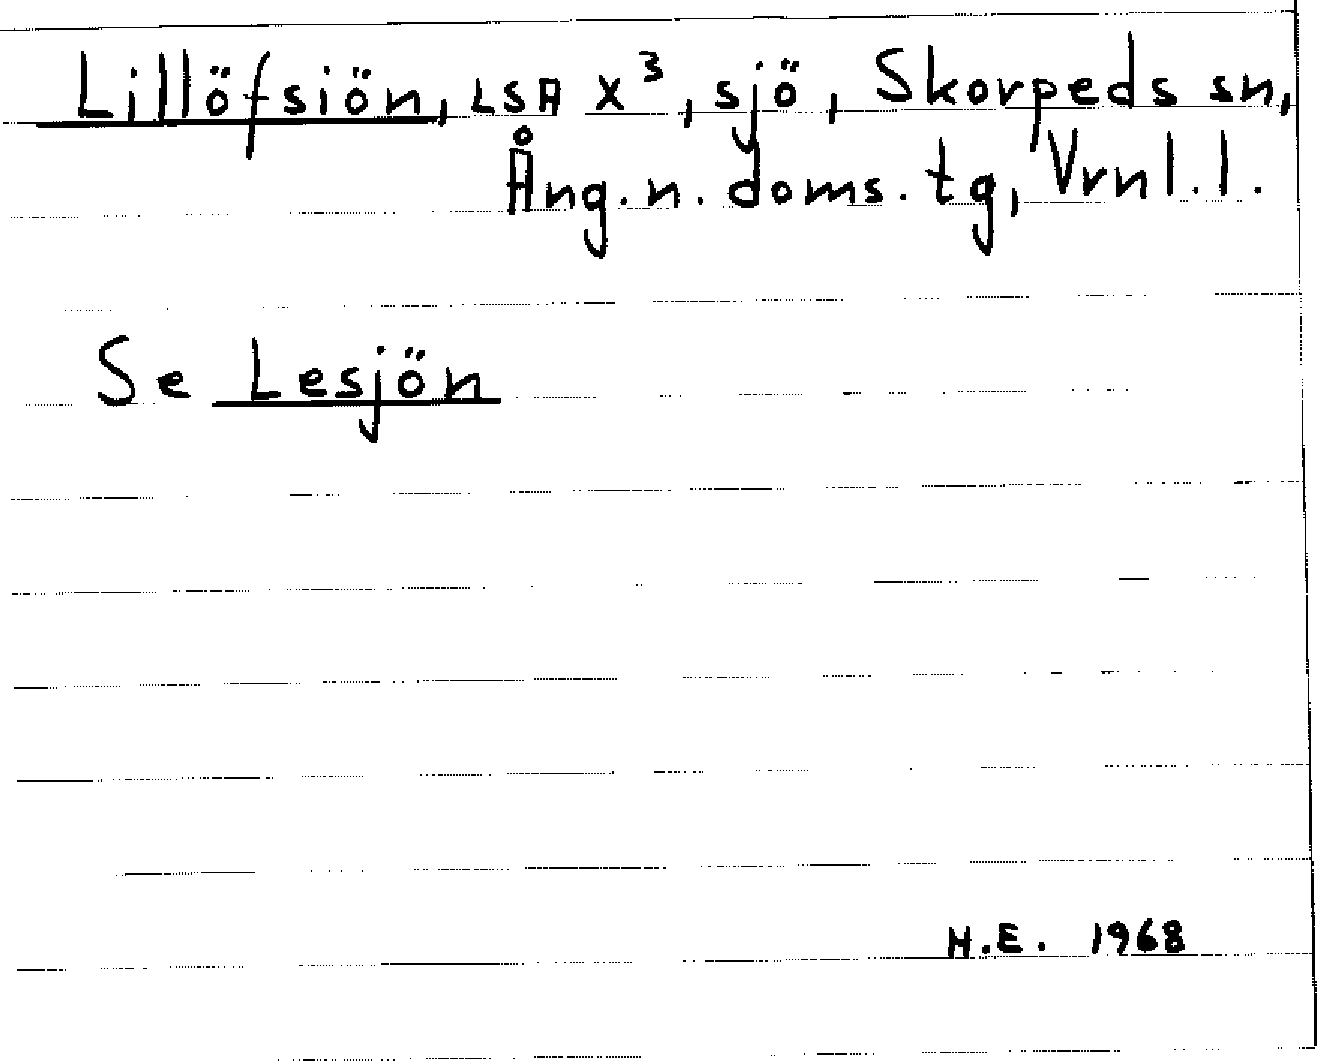 Lillöfsiön, LSA X³, sjö, Skorpeds sn,
Ång.n. doms. tg, Vrnl.l.
Se Lesjön
H.E. 1968